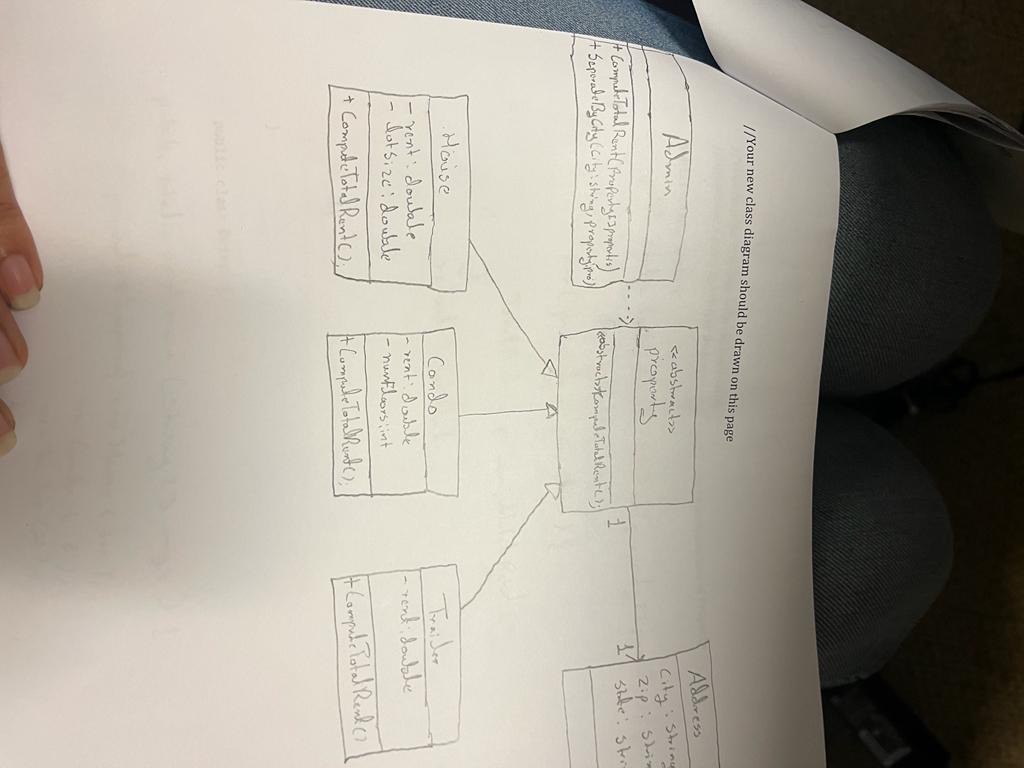 //Your new class diagram should be drawn on this page
Admin
+ ComputeTotalRent(Property[]
+ SeparateByCity(City: string,
<<abstract>>
property
<<abstract>>+ComputeTotalRent();
1
1
Address
City: string
Zip: strin
state: stri
House
- rent: double
- lotsize: double
+ ComputeTotalRent();
Condo
- rent: double
- numFloors: int
+ ComputeTotalRent();
Trailer
- rent: double
+ ComputeTotalRent()